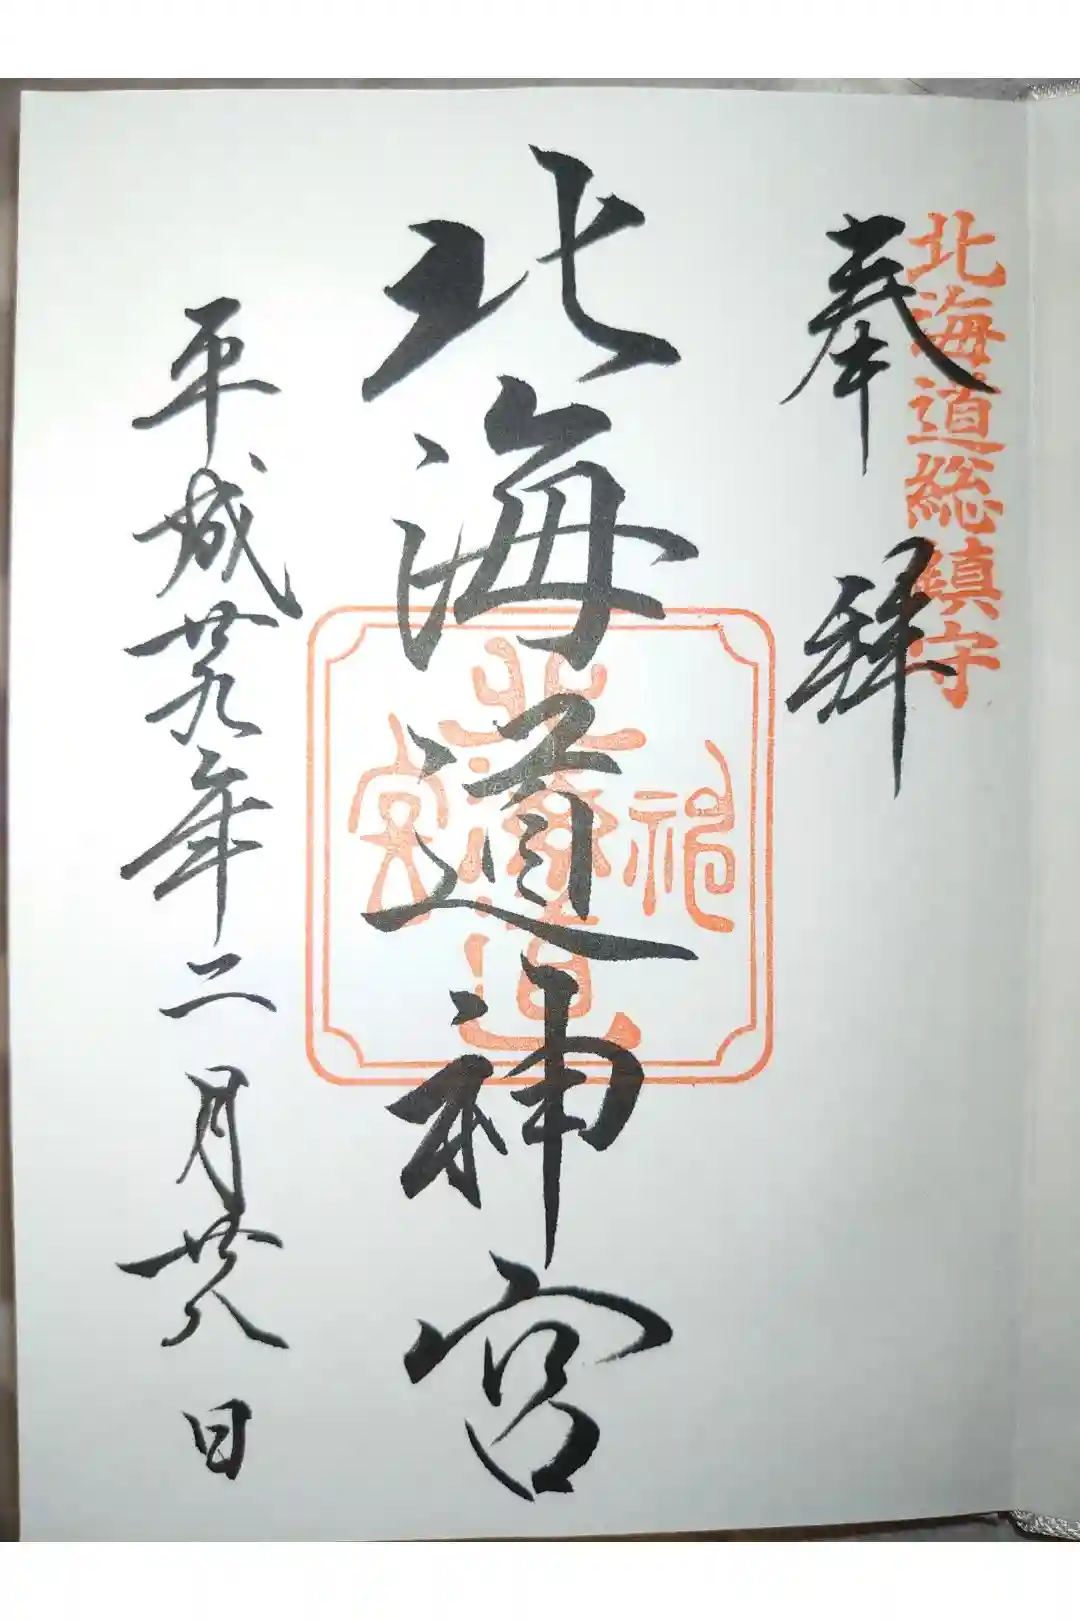 北海道総鎮守
奉拝
北海道神宮
平成廿九年二月廿八日